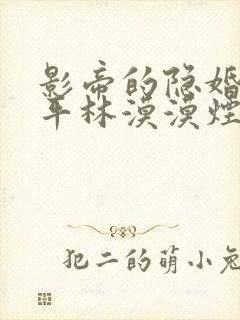 影帝的隐婚
平林漠漠烟
犯二的萌小兔